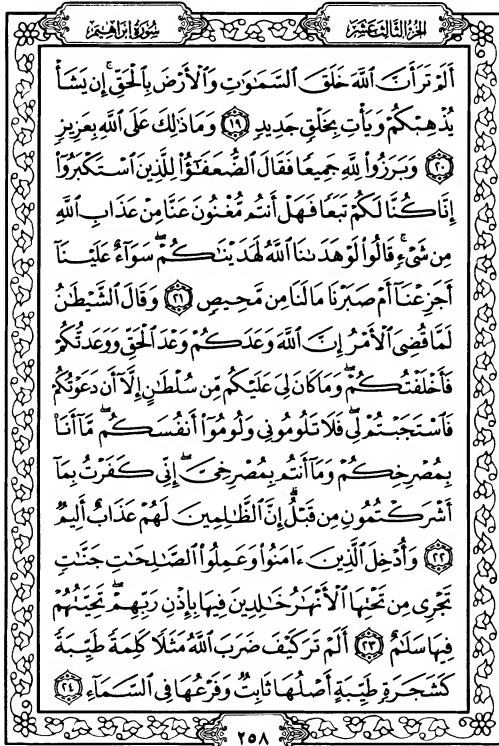 سُورَةُ إِبْرَاهِيمَ
الجُزْءُ الثَّالِثَ عَشَرَ
أَلَمْ تَرَ أَنَّ اللَّهَ خَلَقَ السَّمَٰوَٰتِ وَالْأَرْضَ بِالْحَقِّ ۚ إِن يَشَأْ
يُذْهِبْكُمْ وَيَأْتِ بِخَلْقٍ جَدِيدٍ ١٩ وَمَا ذَٰلِكَ عَلَى اللَّهِ بِعَزِيزٍ
٢٠ وَبَرَزُوا لِلَّهِ جَمِيعًا فَقَالَ الضُّعَفَٰٓؤُا لِلَّذِينَ اسْتَكْبَرُوٓا
إِنَّا كُنَّا لَكُمْ تَبَعًا فَهَلْ أَنتُم مُّغْنُونَ عَنَّا مِنْ عَذَابِ اللَّهِ
مِن شَىْءٍ ۚ قَالُوا لَوْ هَدَىٰنَا اللَّهُ لَهَدَيْنَٰكُمْ ۖ سَوَآءٌ عَلَيْنَآ
أَجَزِعْنَآ أَمْ صَبَرْنَا مَا لَنَا مِن مَّحِيصٍ ٢١ وَقَالَ الشَّيْطَٰنُ
لَمَّا قُضِىَ الْأَمْرُ إِنَّ اللَّهَ وَعَدَكُمْ وَعْدَ الْحَقِّ وَوَعَدتُّكُمْ
فَأَخْلَفْتُكُمْ ۖ وَمَا كَانَ لِىَ عَلَيْكُم مِّن سُلْطَٰنٍ إِلَّآ أَن دَعَوْتُكُمْ
فَاسْتَجَبْتُمْ لِى ۖ فَلَا تَلُومُونِى وَلُومُوٓا أَنفُسَكُم ۖ مَّآ أَنَا
بِمُصْرِخِكُمْ وَمَآ أَنتُم بِمُصْرِخِىَّ ۖ إِنِّى كَفَرْتُ بِمَآ
أَشْرَكْتُمُونِ مِن قَبْلُ ۗ إِنَّ الظَّٰلِمِينَ لَهُمْ عَذَابٌ أَلِيمٌ
٢٢ وَأُدْخِلَ الَّذِينَ ءَامَنُوا وَعَمِلُوا الصَّٰلِحَٰتِ جَنَّٰتٍ
تَجْرِى مِن تَحْتِهَا الْأَنْهَٰرُ خَٰلِدِينَ فِيهَا بِإِذْنِ رَبِّهِمْ ۖ تَحِيَّتُهُمْ
فِيهَا سَلَٰمٌ ٢٣ أَلَمْ تَرَ كَيْفَ ضَرَبَ اللَّهُ مَثَلًا كَلِمَةً طَيِّبَةً
كَشَجَرَةٍ طَيِّبَةٍ أَصْلُهَا ثَابِتٌ وَفَرْعُهَا فِى السَّمَآءِ ٢٤
٢٥٨